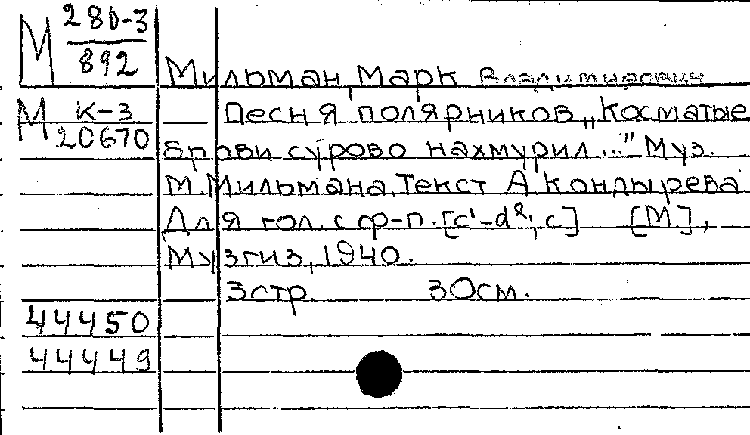 М 280-3
892
Мильман, Марк Владимирович
М К-3
20670
Песня полярников „Косматые
брови сурово нахмурил..." Муз.
М. Мильмана. Текст А. Кондырева
Для гол. с ср-п. [c¹-d²; c] [М],
Музгиз, 1940.
3 стр. 30 см.
44450
44449